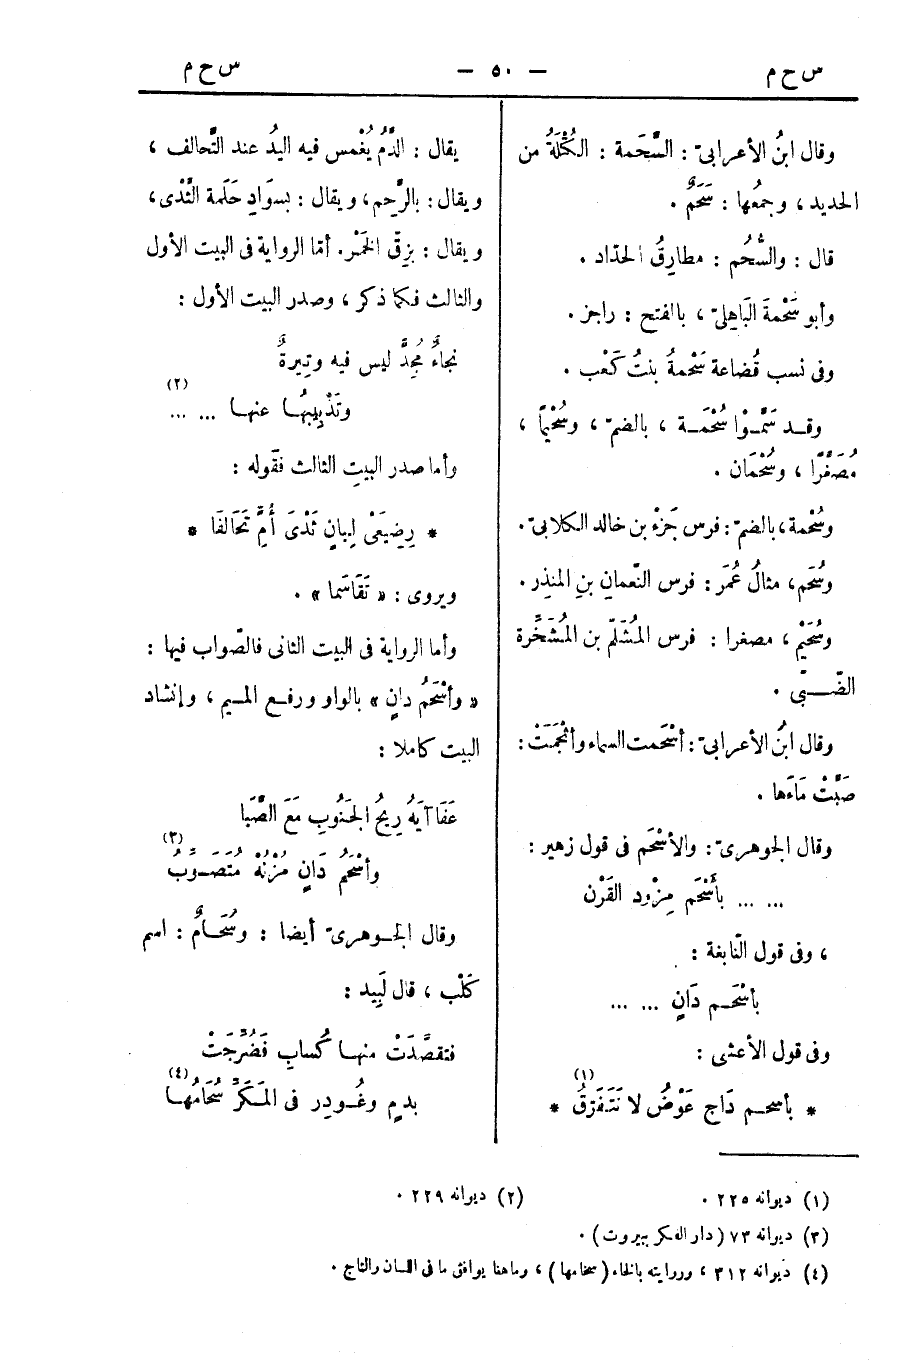 س ح م — ٥٠ — س ح م
وقال ابنُ الأعرابىّ : السَّحَمة : الكُتْلَةُ من
الحديد ، وجمعُها : سَحَمٌ .
قال : والسُّحُم : مطارِقُ الحدّاد .
وأبو سَحْمةَ البَاهِلىّ ، بالفتح : راجز .
وفى نسب قُضاعة سَحْمةُ بنتُ كَعْب .
وقـد سَمَّـوْا سُحْمَـة ، بالضمّ ، وسُحَيْمًا ،
مُصَغَّرًا ، وسُحْمَان .
وسُحْمة ، بالضمّ : فرس جَزْء بن خالد الكلابىّ .
وسُحَم ، مثالُ عُمَر : فرس النّعمانِ بنِ المنذِر .
وسُحَيْم ، مصغرا : فرس المُثَلَّم بن المُشَخَّرة
الضَّـبّى .
وقال ابنُ الأعرابىّ : أسْحَمت السماء وأثْجَمَتْ :
صَبَّتْ مَاءَها .
وقال الجوهرىّ : والأَسْحَم فى قول زهير :
... ... بأَسْحَم مِزْود القَرْن
، وفى قول النّابغة :
بأَسْحَـم دَانٍ ... ...
وفى قول الأعشى :
* بأسحـم دَاجٍ عَوْضُ لا نَتَفَرَّقُ * (١)
يقال : الدَّمُ يُغْمس فيه اليدُ عند التَّحالف ،
ويقال : بالرَّحِم ، ويقال : بسوَادِ حَلَمة الثَّدْى ،
ويقال : بِزِقّ الخَمْر . أمّا الرواية فى البيت الأول
والثالث فكما ذكر ، وصدر البيت الأول :
نجاءٌ مُجِدٌّ ليس فيه وتِيرةٌ
وتَذْبِيبُهـا عنهـا ... ... (٢)
وأما صدر البيتِ الثالث فقوله :
* رضِيعَىْ لِبانٍ ثَدْىَ أُمٍّ تَحَالَفَا *
ويروى : « تَقَاسَما » .
وأما الرواية فى البيت الثانى فالصّواب فيها :
« وأَسْحَمُ دانٍ » بالواو ورفـع المـيم ، وإنشاد
البيت كاملا :
عَفَا آيَهُ رِيحُ الجَنُوبِ مَعَ الصَّبَا
وأَسْحَمُ دَانٍ مُزْنُهُ مُتَصَـوِّبُ (٣)
وقال الجـوهرىّ أيضا : وسُحَـامٌ : اسم
كَلْب ، قال لَبِيد :
فتقصَّدَتْ منهـا كُسابِ فَضُرِّجَتْ
بدمٍ وغُـودِر فى المَـكَرِّ سُحَامُهـا (٤)
(١) ديوانه ٢٢٥ . (٢) ديوانه ٢٢٩ .
(٣) ديوانه ٧٣ (دار الفكر بيروت) .
(٤) ديوانه ٣١٢ ، وروايته بالخاء (سخامها) ، وما هنا يوافق ما فى اللسان والتاج .